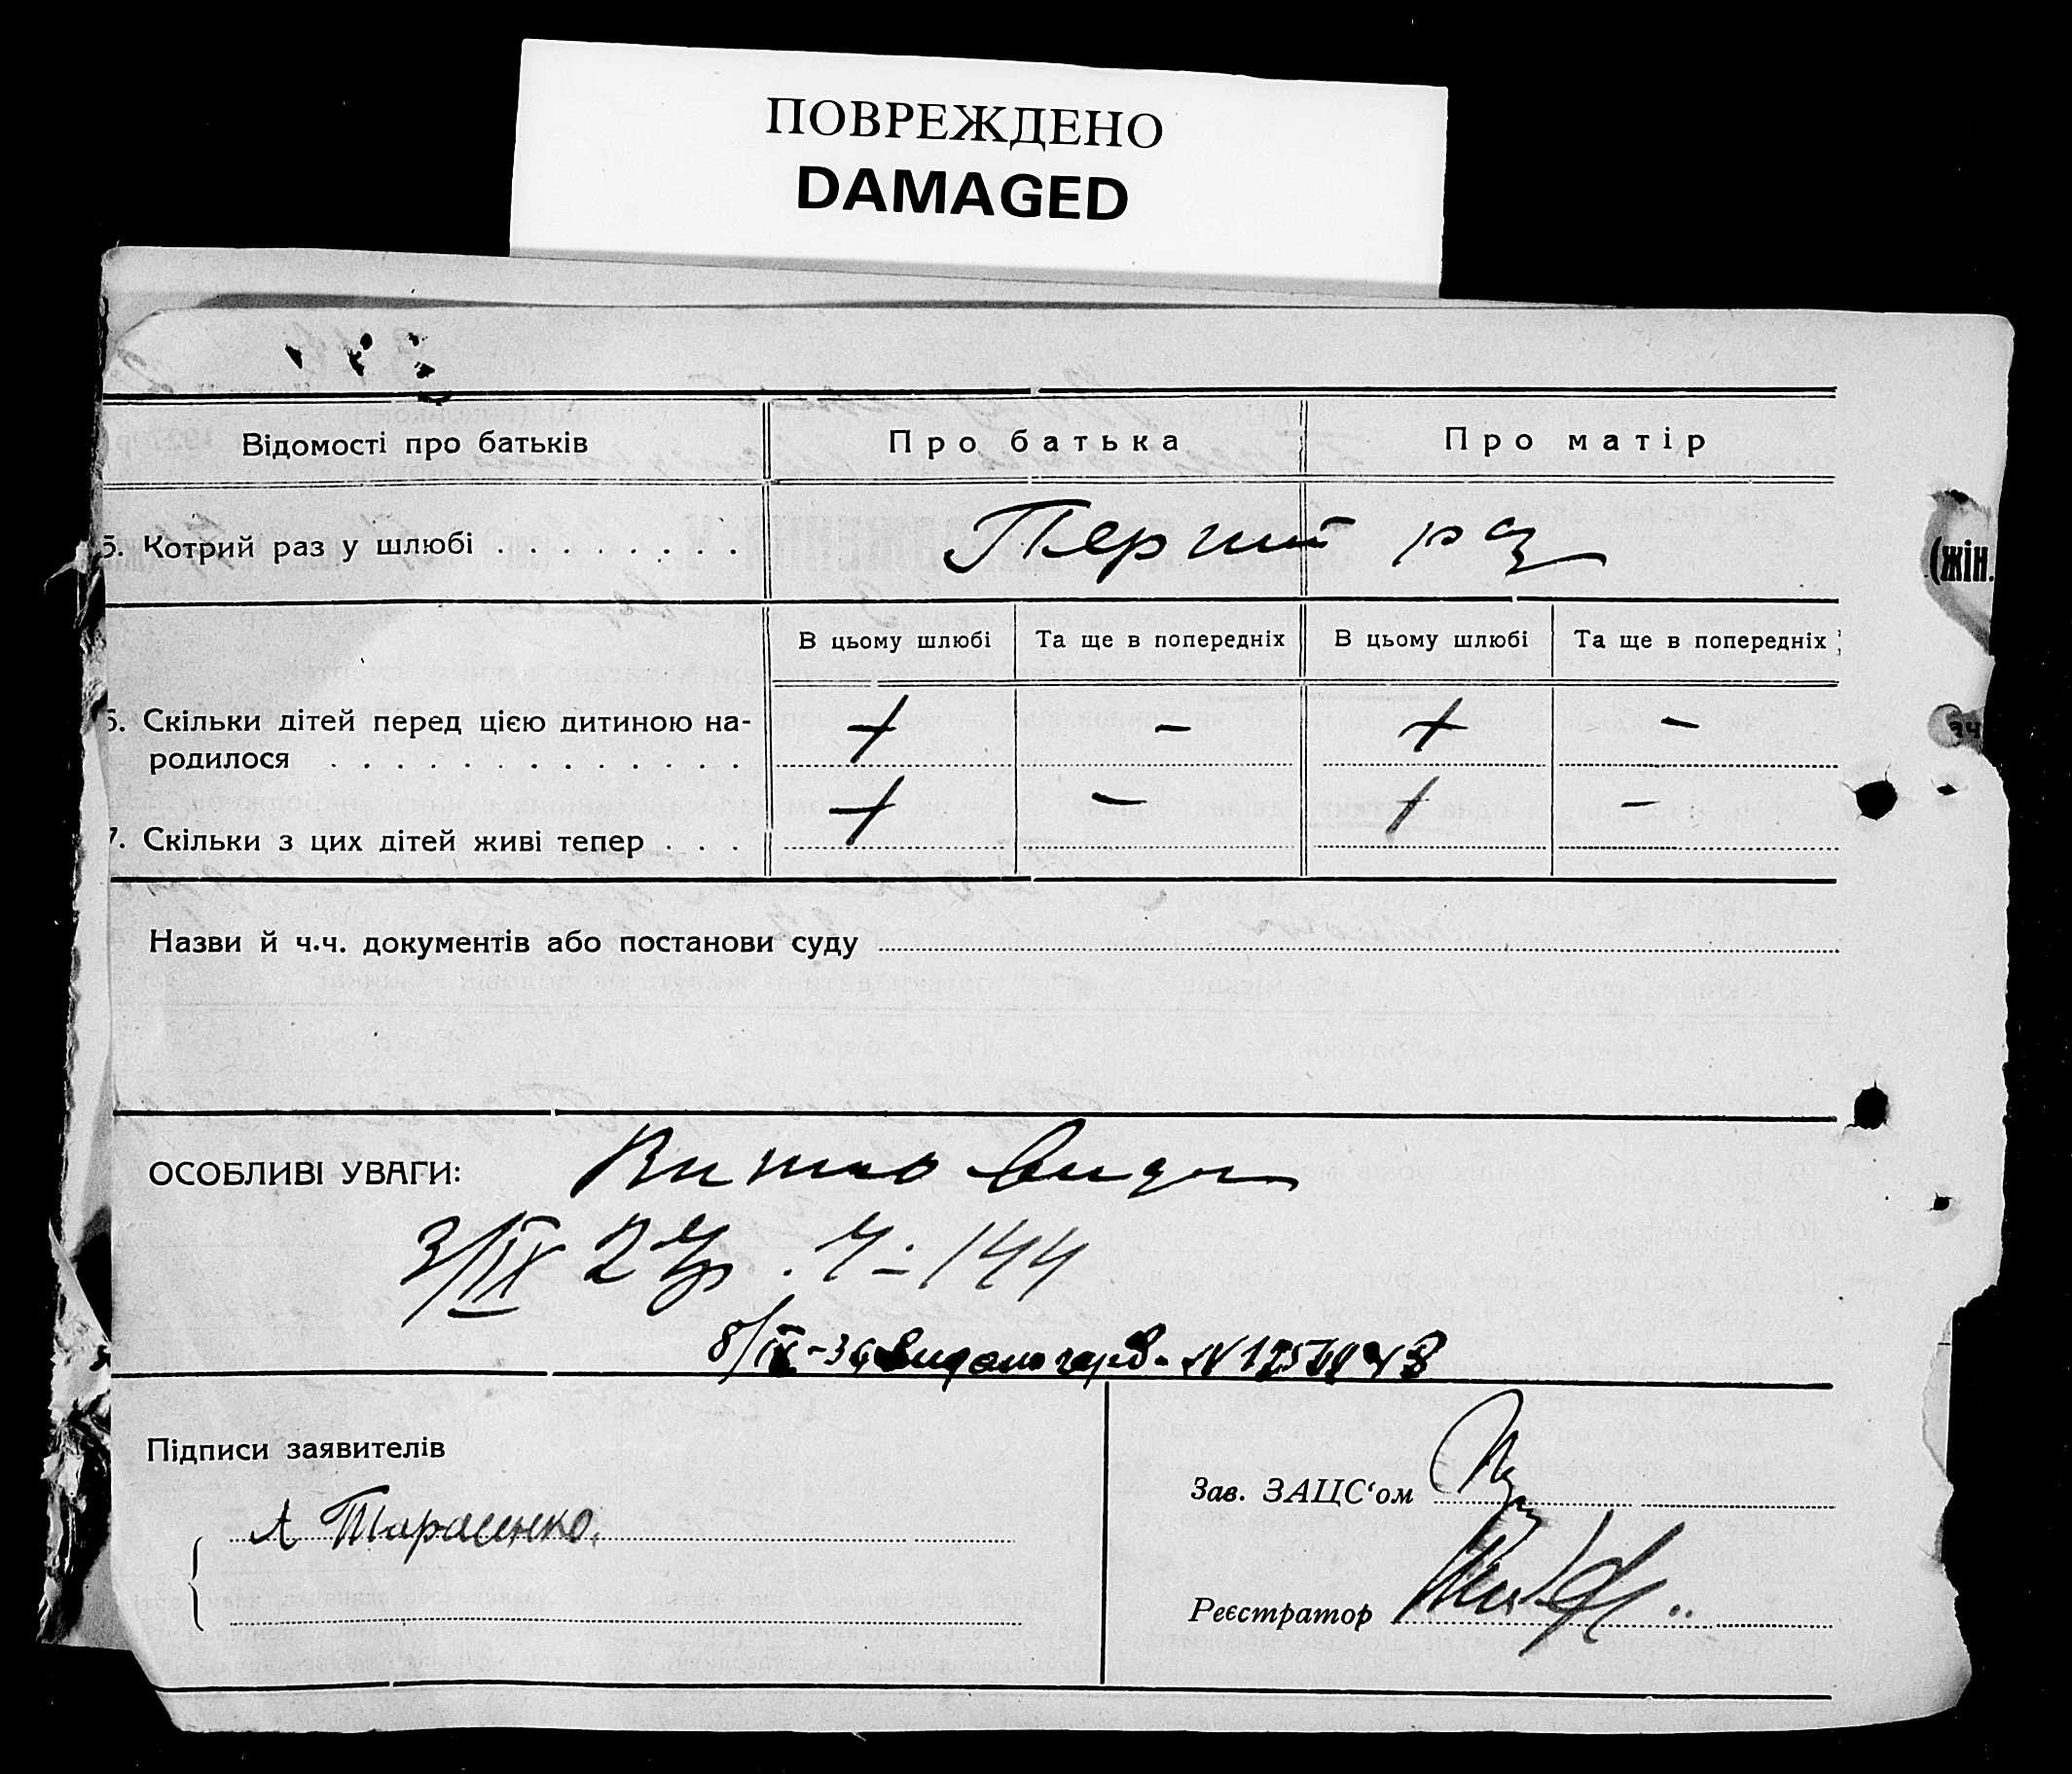 ПОВРЕЖДЕНО
DAMAGED
Відомості про батьків
Про батька
Про матір
5. Котрий раз у шлюбі . . . . . . . .
Перший раз
(жін.
В цьому шлюбі
Та ще в попередніх
В цьому шлюбі
Та ще в попередніх
6. Скільки дітей перед цією дитиною на-
родилося . . . . . . . . . . . . .
+ – + –
7. Скільки з цих дітей живі тепер . . .
+ – + –
Назви й ч.ч. документів або постанови суду
ОСОБЛИВІ УВАГИ:
3/IX 27р. Ч-144
8/IX-
Підписи заявителів
А Тарасенко.
Зав. ЗАЦС‘ом
Реєстратор